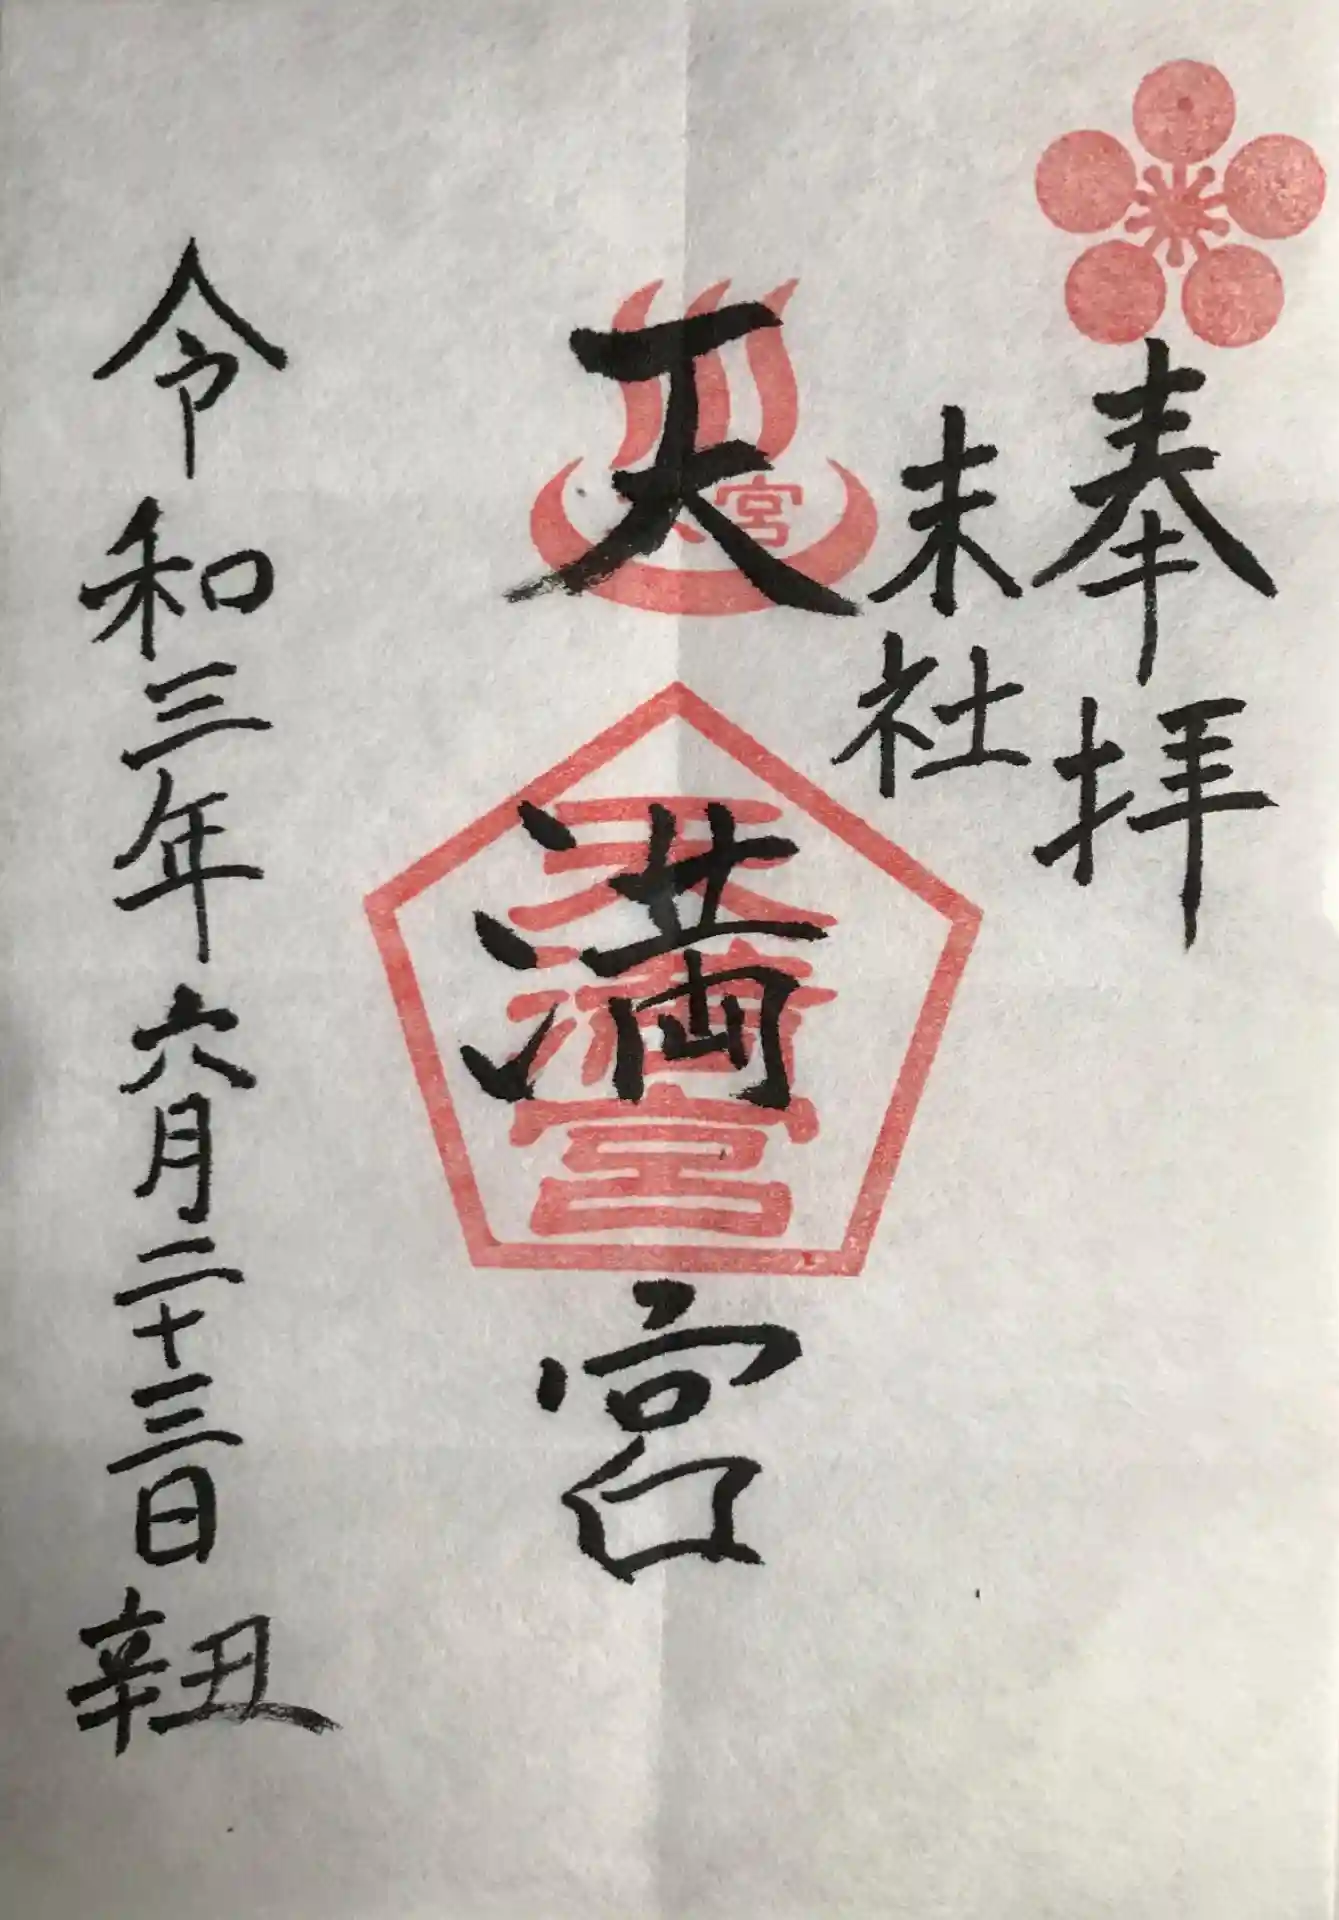 奉拝
末社
天満宮
天満宮
宮
令和三年六月二十三日 辛丑